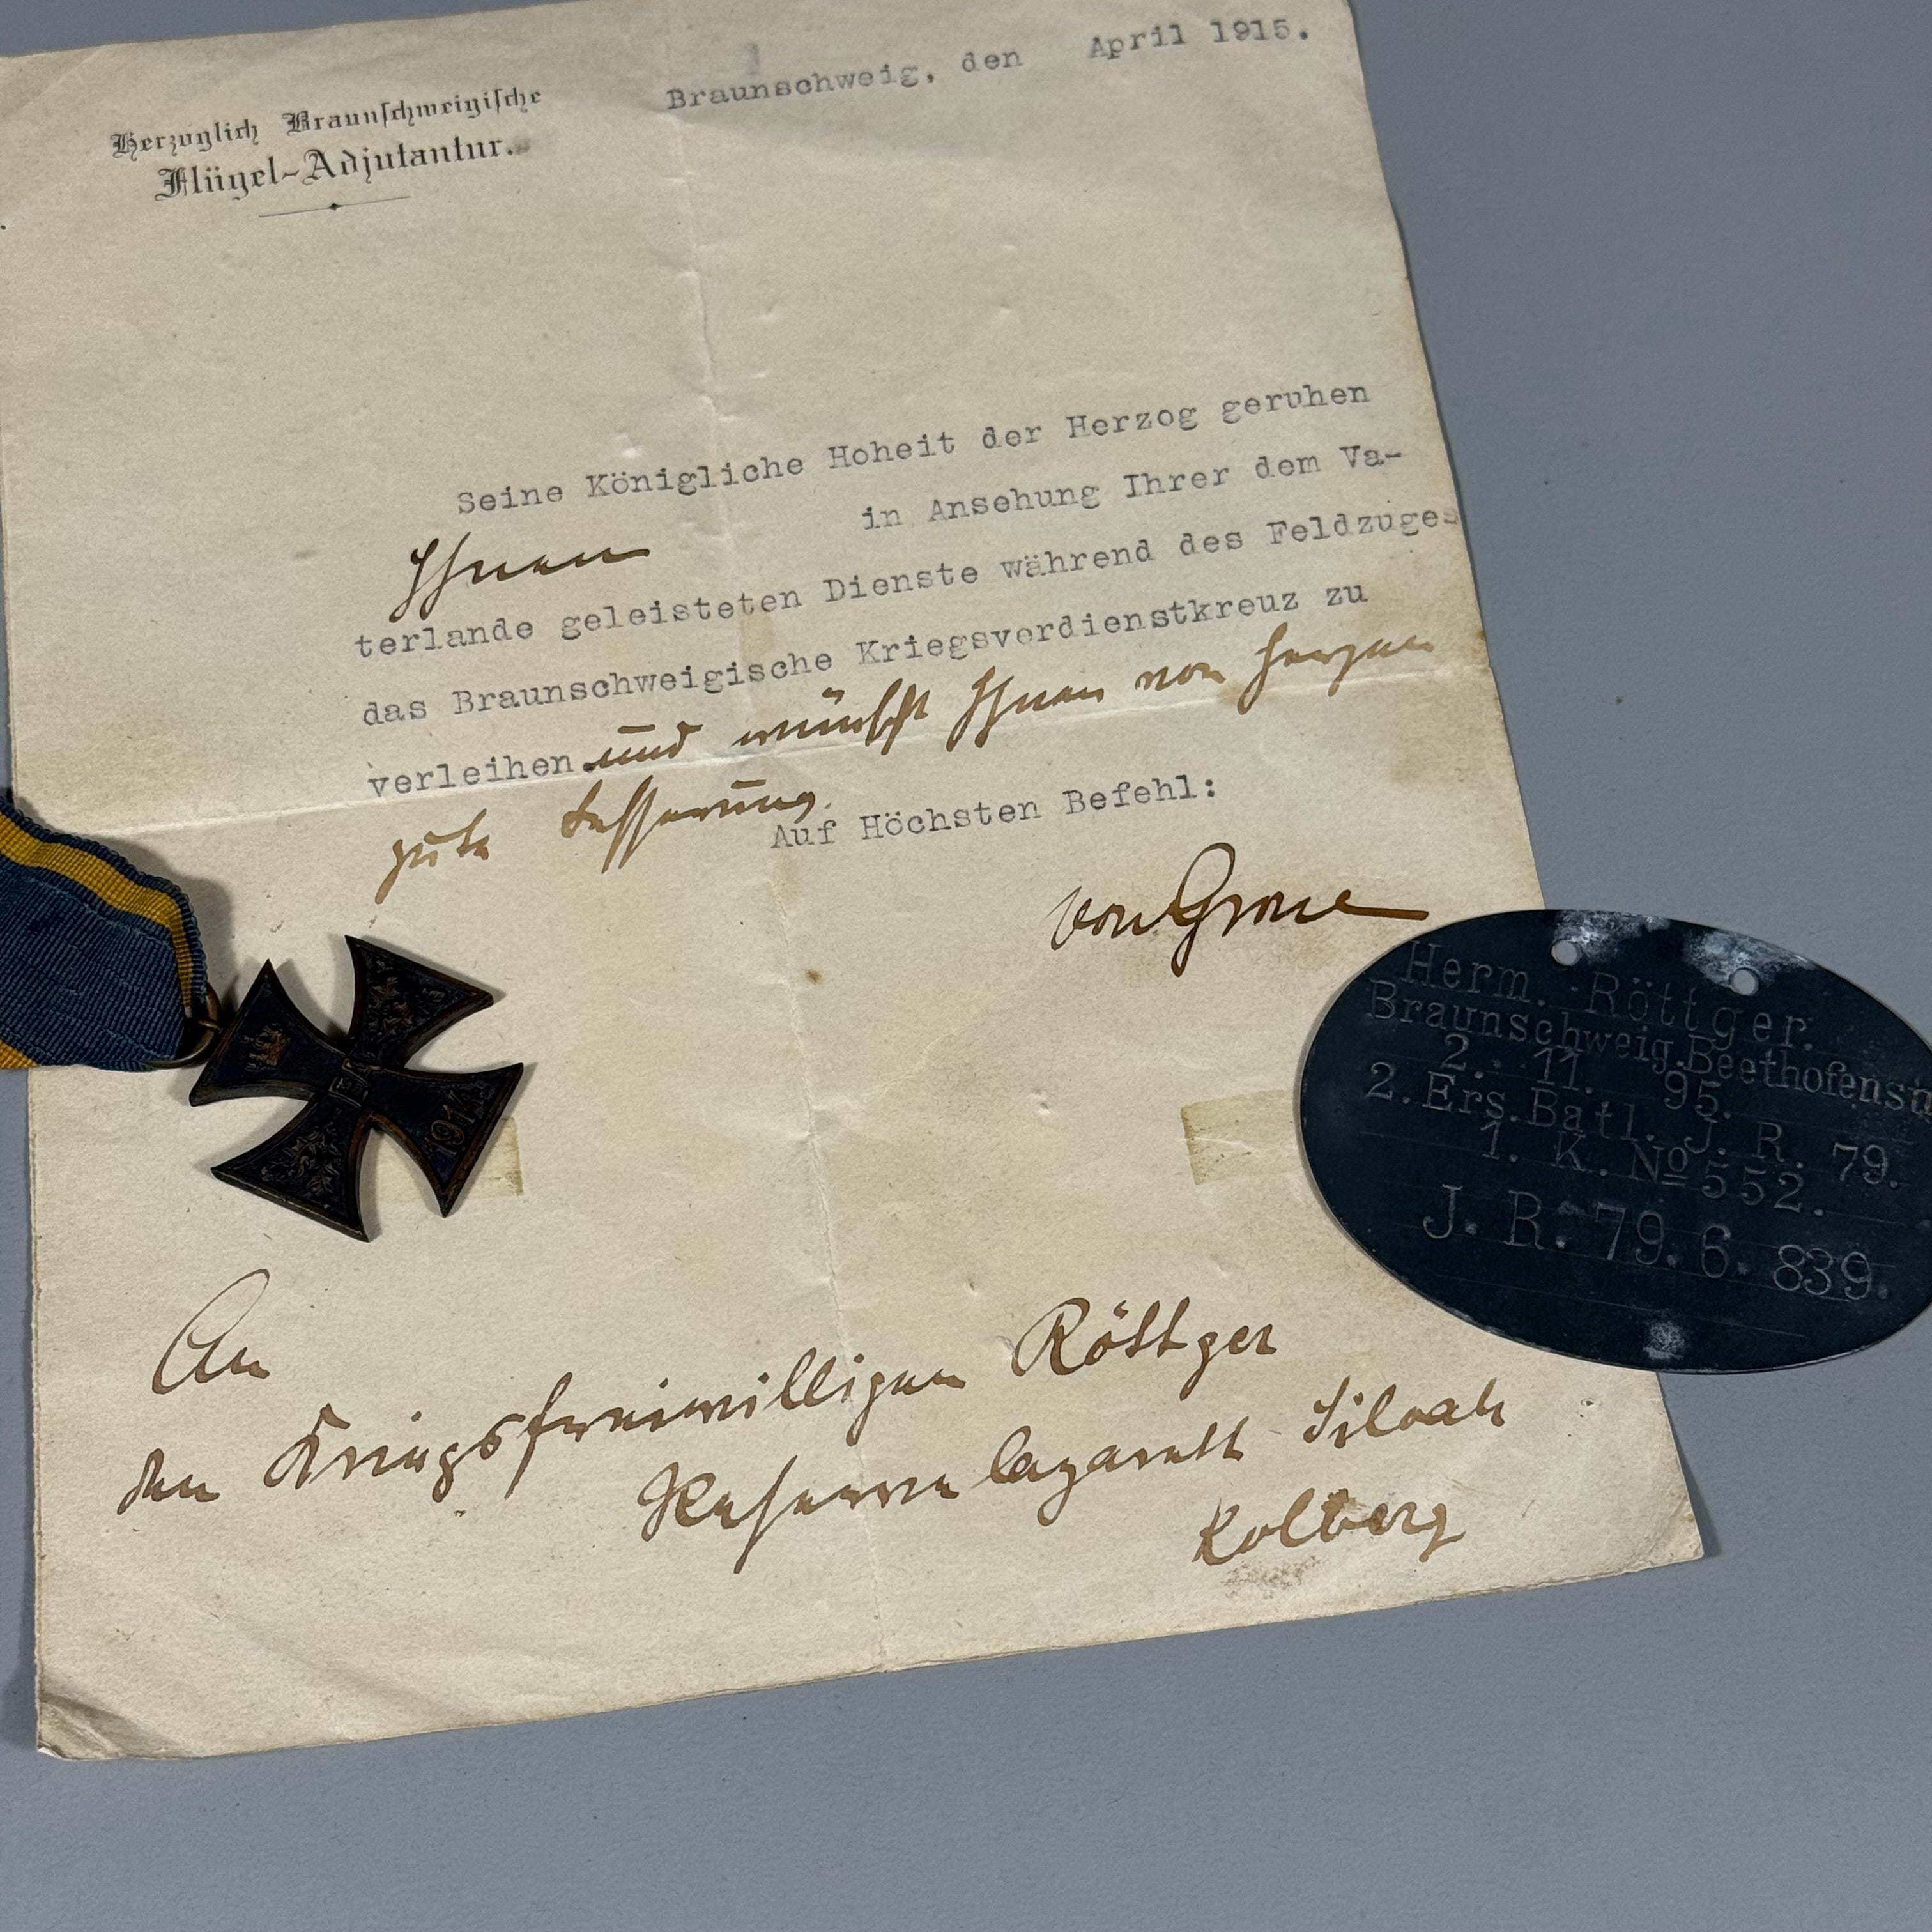 Herzoglich Braunschweigische
Flügel-Adjutantur.
Braunschweig, den April 1915.
Seine Königliche Hoheit der Herzog geruhen
Ihnen in Ansehung Ihrer dem Va-
terlande geleisteten Dienste während des Feldzuges
das Braunschweigische Kriegsverdienstkreuz zu
verleihen. und wünscht Ihnen von Herzen
gute Besserung.
Auf Höchsten Befehl:
von Grone
An
den Kriegsfreiwilligen Röttger
Reservelazarett Siloah
Kolberg
1914
Herm. Röttger.
Braunschweig. Beethofenst
2. 11. 95.
2. Ers. Batl. J. R. 79.
1. K. No 552.
J. R. 79. 6. 839.